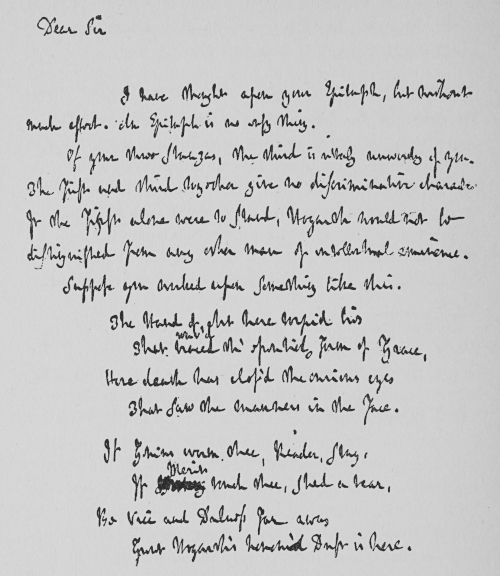 Dear Sir
I have thought upon your Epitaph, but without
much effect. An Epitaph is no easy thing.
Of your three stanzas, the third is utterly unworthy of you.
The First and third together give no discriminative character
If the First alone were to stand, Hogarth would not be
distinguished from any other man of intellectual eminence.
Suppose you worked upon something like this.
The Hand of Art here torpid lies
That traced th' essential form of Grace,
Here death has clos'd the curious eyes
That saw the manners in the Face.
If Genius warm thee, Reader, stay,
If Merit touch thee, shed a tear,
Be Vice and Dulness far away
Great Hogarth's honour'd Dust is here.